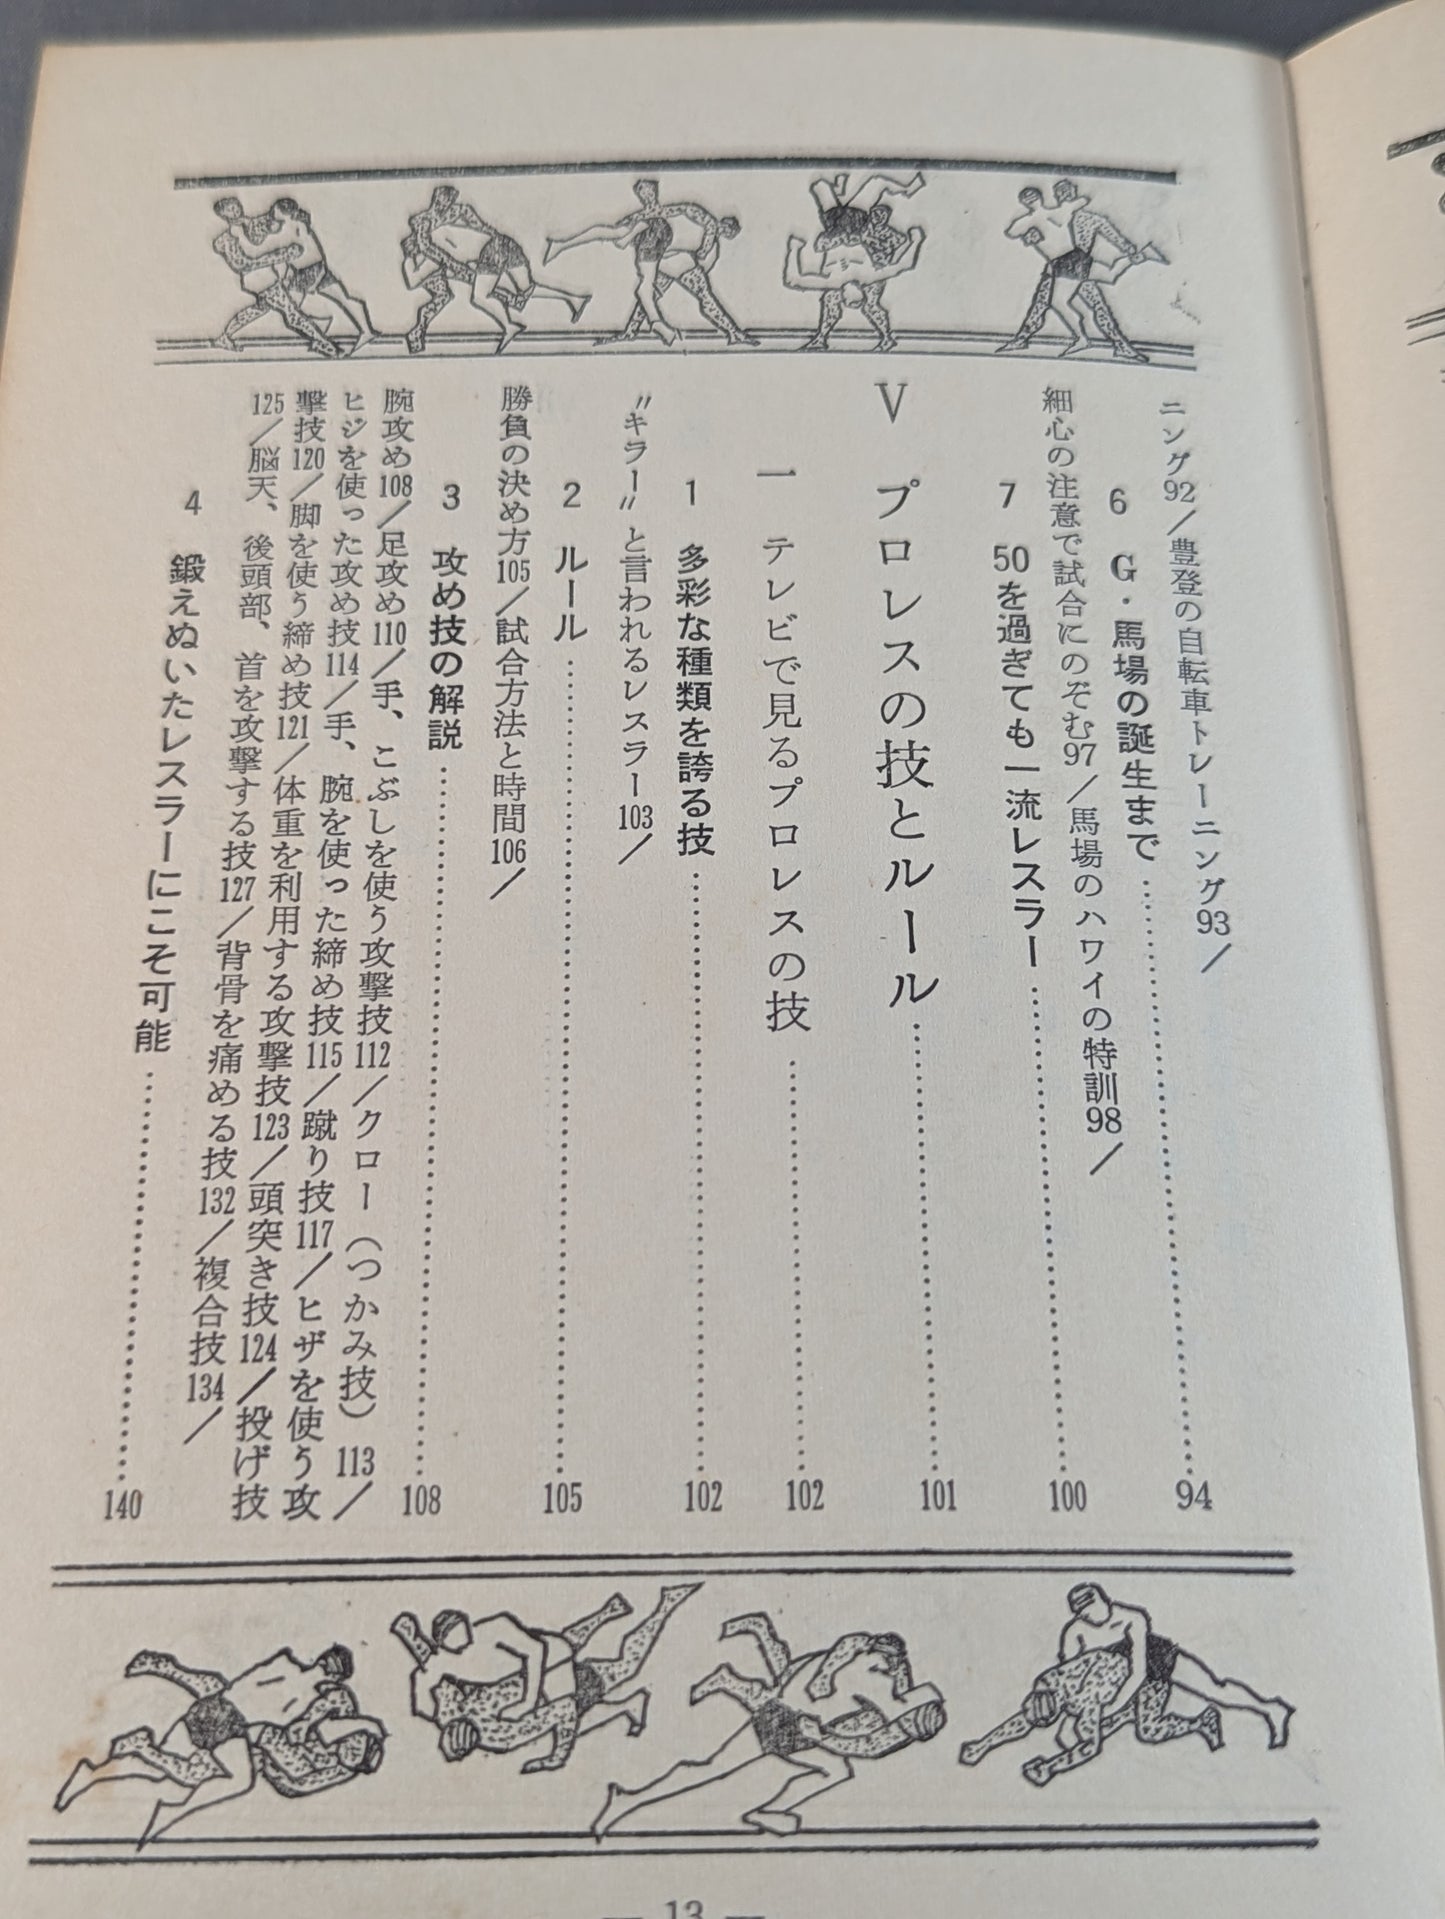 ニング92／豊登の自転車トレーニング93／
6 G・馬場の誕生まで……94
細心の注意で試合にのぞむ97／馬場のハワイの特訓98／
7 50を過ぎても一流レスラー……100
V プロレスの技とルール……101
一 テレビで見るプロレスの技……102
1 多彩な種類を誇る技……102
〃キラー〃と言われるレスラー103／
2 ルール……105
勝負の決め方105／試合方法と時間106／
3 攻め技の解説……108
腕攻め108／足攻め110／手、こぶしを使う攻撃技112／クロー（つかみ技）113／
ヒジを使った攻め技114／手、腕を使った締め技115／蹴り技117／ヒザを使う攻
撃技120／脚を使う締め技121／体重を利用する攻撃技123／頭突き技124／投げ技
125／脳天、後頭部、首を攻撃する技127／背骨を痛める技132／複合技134／
4 鍛えぬいたレスラーにこそ可能……140
— 13 —